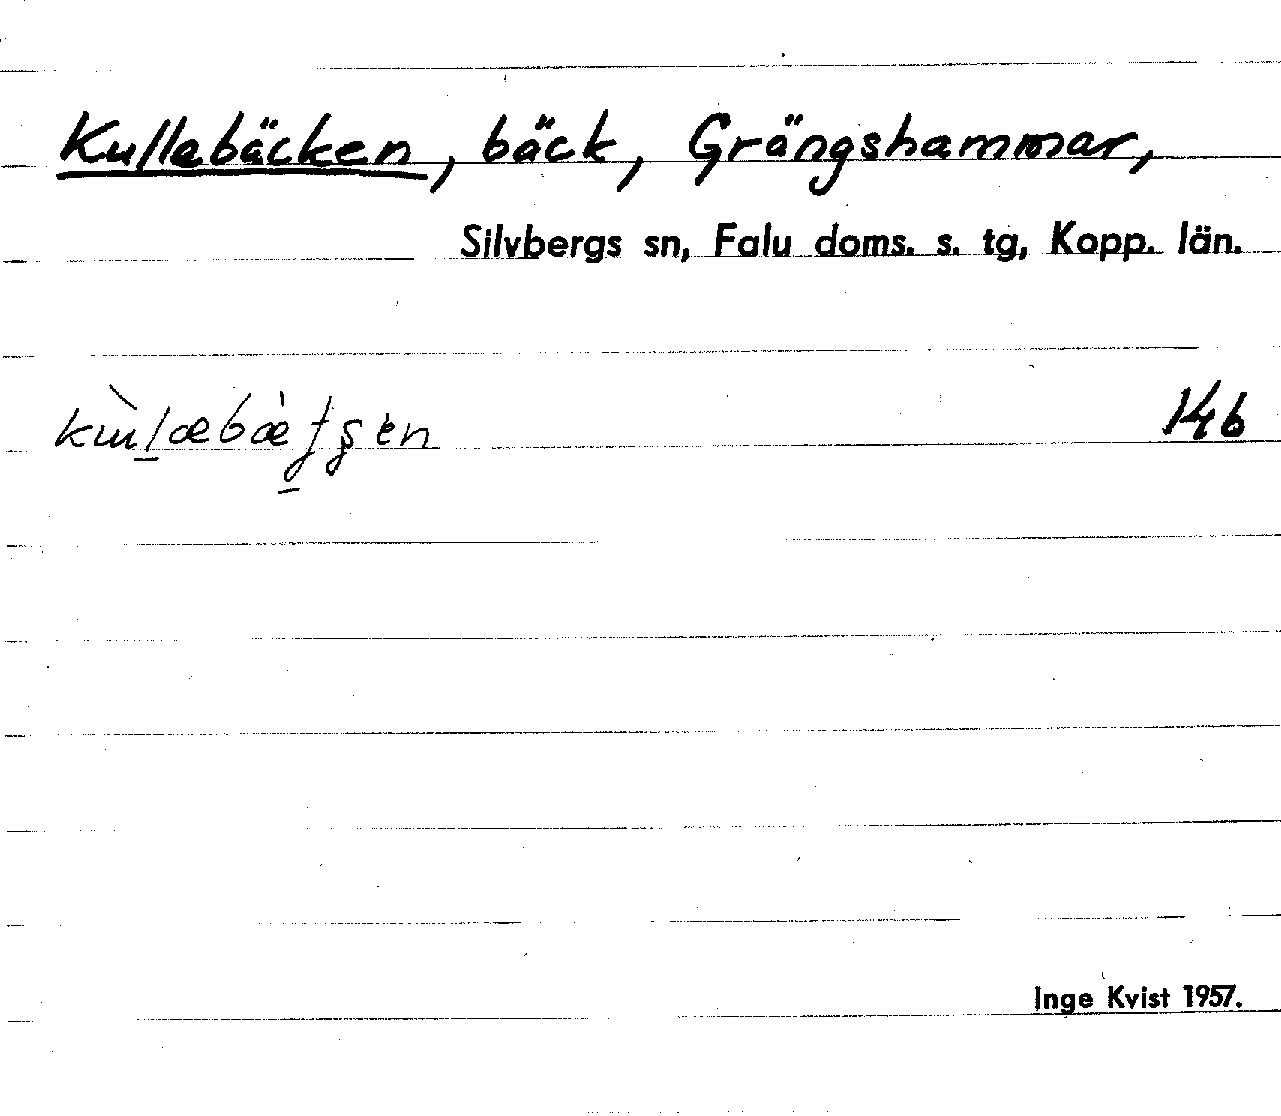 Kullebäcken, bäck, Grängshammar,
Silvbergs sn, Falu doms. s. tg, Kopp. län.
146
Inge Kvist 1957.